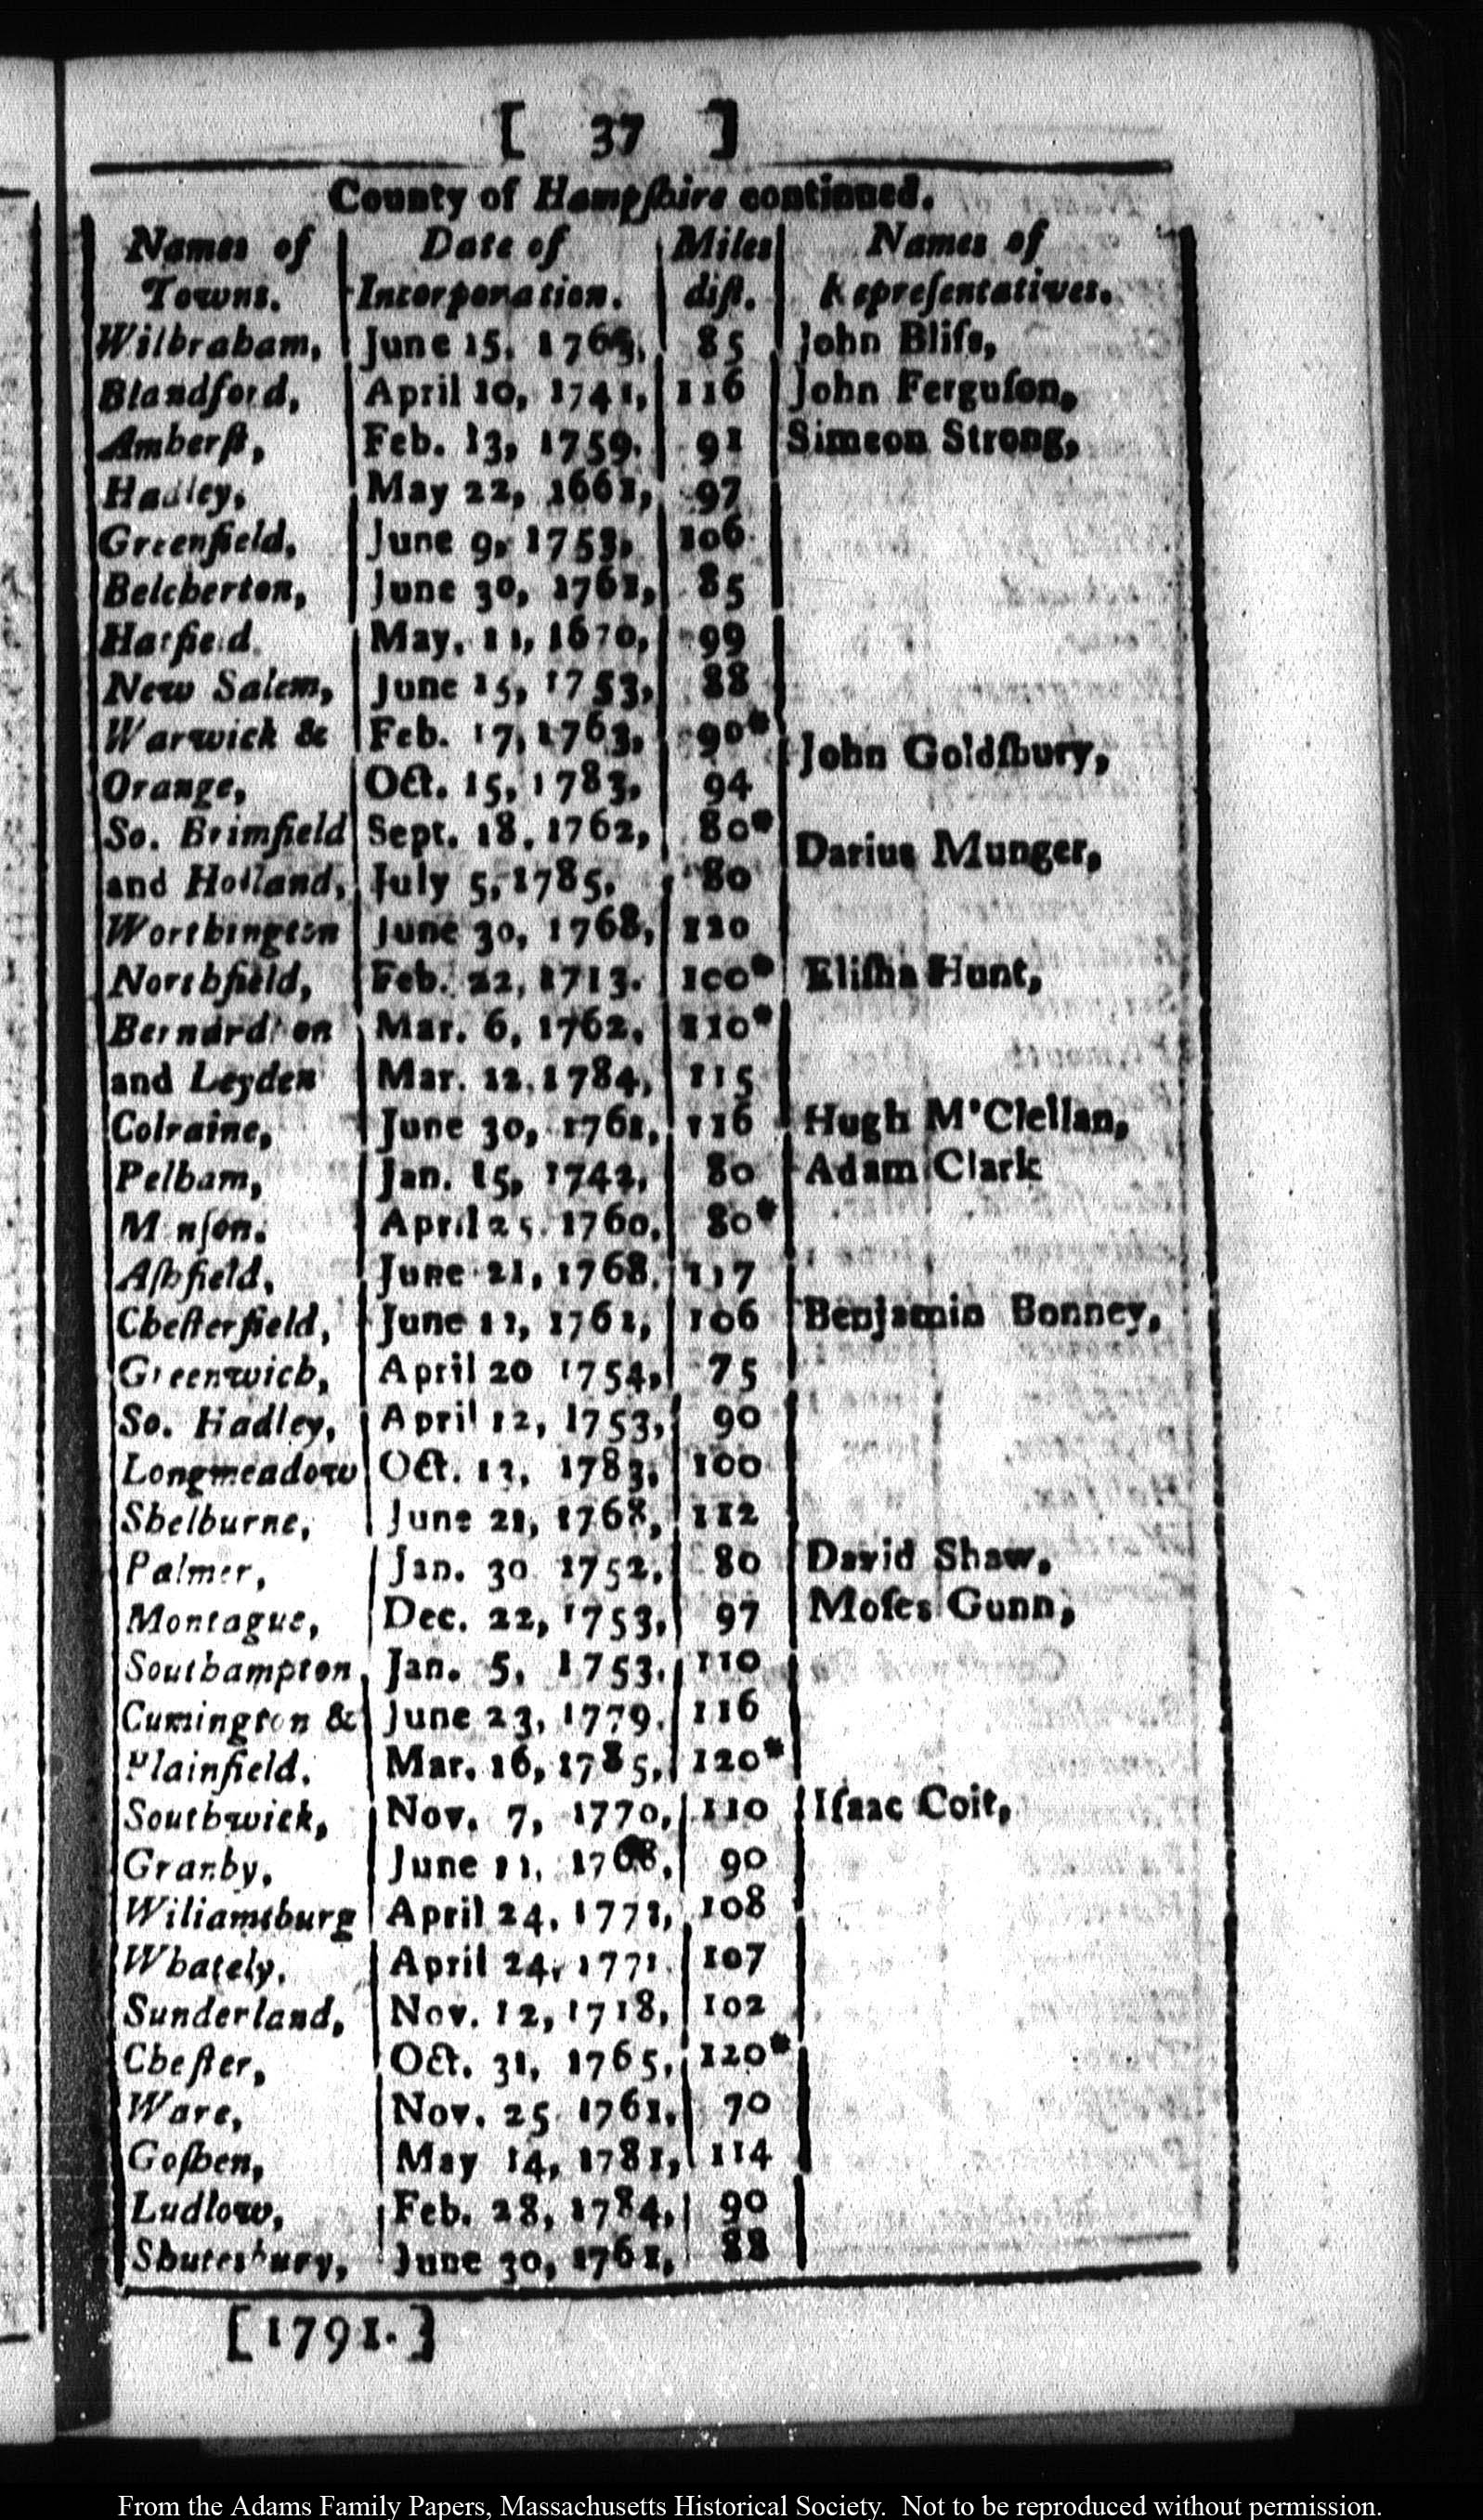 [ 37 ]
County of Hampſhire continued.
Names of Towns. Date of Incorporation. Miles diſt. Names of Repreſentatives.
Wilbraham, June 15, 1763, 85 John Bliſs,
Blandford, April 10, 1741, 116 John Ferguſon,
Amherſt, Feb. 13, 1759. 91 Simeon Strong,
Hadley, May 22, 1661, 97
Greenfield, June 9, 1753, 106
Belcherton, June 30, 1761, 85
Hatfield May, 11, 1670, 99
New Salem, June 15, 1753, 88
Warwick & Feb. 17, 1763, 90*
John Goldſbury,
Orange, Oct. 15, 1783, 94
So. Brimfield Sept. 18, 1762, 80*
Darius Munger,
and Holland, July 5, 1785. 80
Worthington June 30, 1768, 120
Northfield, Feb. 22, 1713. 100* Eliſha Hunt,
Bernardſton Mar. 6, 1762, 110*
and Leyden Mar. 12, 1784, 115
Colraine, June 30, 1761, 116 Hugh M'Clellan,
Pelham, Jan. 15, 1742, 80 Adam Clark
Monſon. April 25. 1760, 80*
Aſhfield, June 21, 1768, 117
Cheſterfield, June 11, 1762, 106 Benjamin Bonney,
Greenwich, April 20 1754, 75
So. Hadley, April 12, 1753, 90
Longmeadow Oct. 13, 1783, 100
Shelburne, June 21, 1768, 112
Palmer, Jan. 30 1752, 80 David Shaw,
Montague, Dec. 22, 1753, 97 Moſes Gunn,
Southampton, Jan. 5, 1753, 110
Cumington & June 23, 1779. 116
Plainfield. Mar. 16, 1785, 120*
Southwick, Nov. 7, 1770, 110 Iſaac Coit,
Granby, June 11, 1768, 90
Wiliamsburg April 24, 1771, 108
Whately, April 24, 1771. 107
Sunderland, Nov. 12, 1718, 102
Cheſter, Oct. 31, 1765, 120*
Ware, Nov. 25 1761, 70
Goſhen, May 14, 1781, 114
Ludlow, Feb. 28, 1784, 90
Shutesbury, June 30, 1761, 88
[1791.]
From the Adams Family Papers, Massachusetts Historical Society. Not to be reproduced without permission.